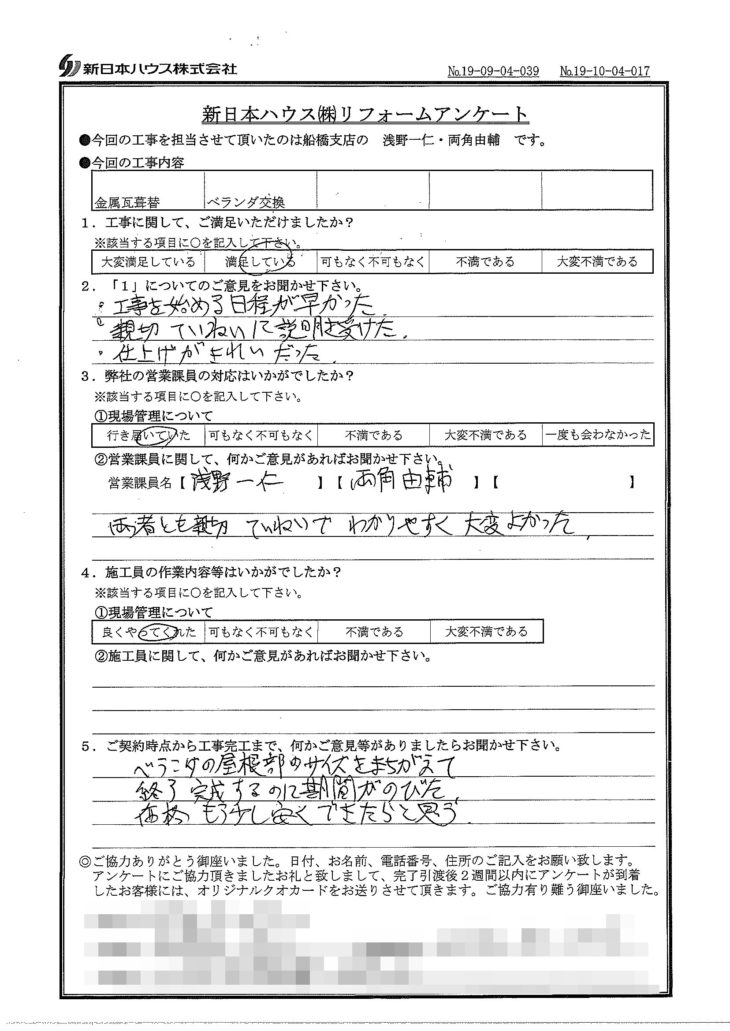 新日本ハウス株式会社
№19-09-04-039 №19-10-04-017
新日本ハウス㈱リフォームアンケート
●今回の工事を担当させて頂いたのは船橋支店の 浅野一仁・両角由輔 です。
●今回の工事内容
金属瓦葺替 ベランダ交換
1．工事に関して、ご満足いただけましたか？
※該当する項目に○を記入して下さい。
大変満足している 満足している 可もなく不可もなく 不満である 大変不満である
2．「1」についてのご意見をお聞かせ下さい。
・工事を始める日程が早かった.
・親切 ていねいに説明を受けた.
・仕上げがきれいだった.
3．弊社の営業課員の対応はいかがでしたか？
※該当する項目に○を記入して下さい。
①現場管理について
行き届いていた 可もなく不可もなく 不満である 大変不満である 一度も会わなかった
②営業課員に関して、何かご意見があればお聞かせ下さい。
営業課員名【 浅野一仁 】【 両角由輔 】【 】
両者とも親切 ていねいで わかりやすく 大変よかった.
4．施工員の作業内容等はいかがでしたか？
※該当する項目に○を記入して下さい。
①現場管理について
良くやってくれた 可もなく不可もなく 不満である 大変不満である
②施工員に関して、何かご意見があればお聞かせ下さい。
5．ご契約時点から工事完工まで、何かご意見等がありましたらお聞かせ下さい。
ベランダの屋根部のサイズをまちがえて
終了 完成するのに期間がのびた.
価格 もう少し安くできたらと思う.
◎ご協力ありがとう御座いました。日付、お名前、電話番号、住所のご記入をお願い致します。
アンケートにご協力頂きましたお礼と致しまして、完了引渡後２週間以内にアンケートが到着
したお客様には、オリジナルクオカードをお送りさせて頂きます。ご協力有り難う御座いました。